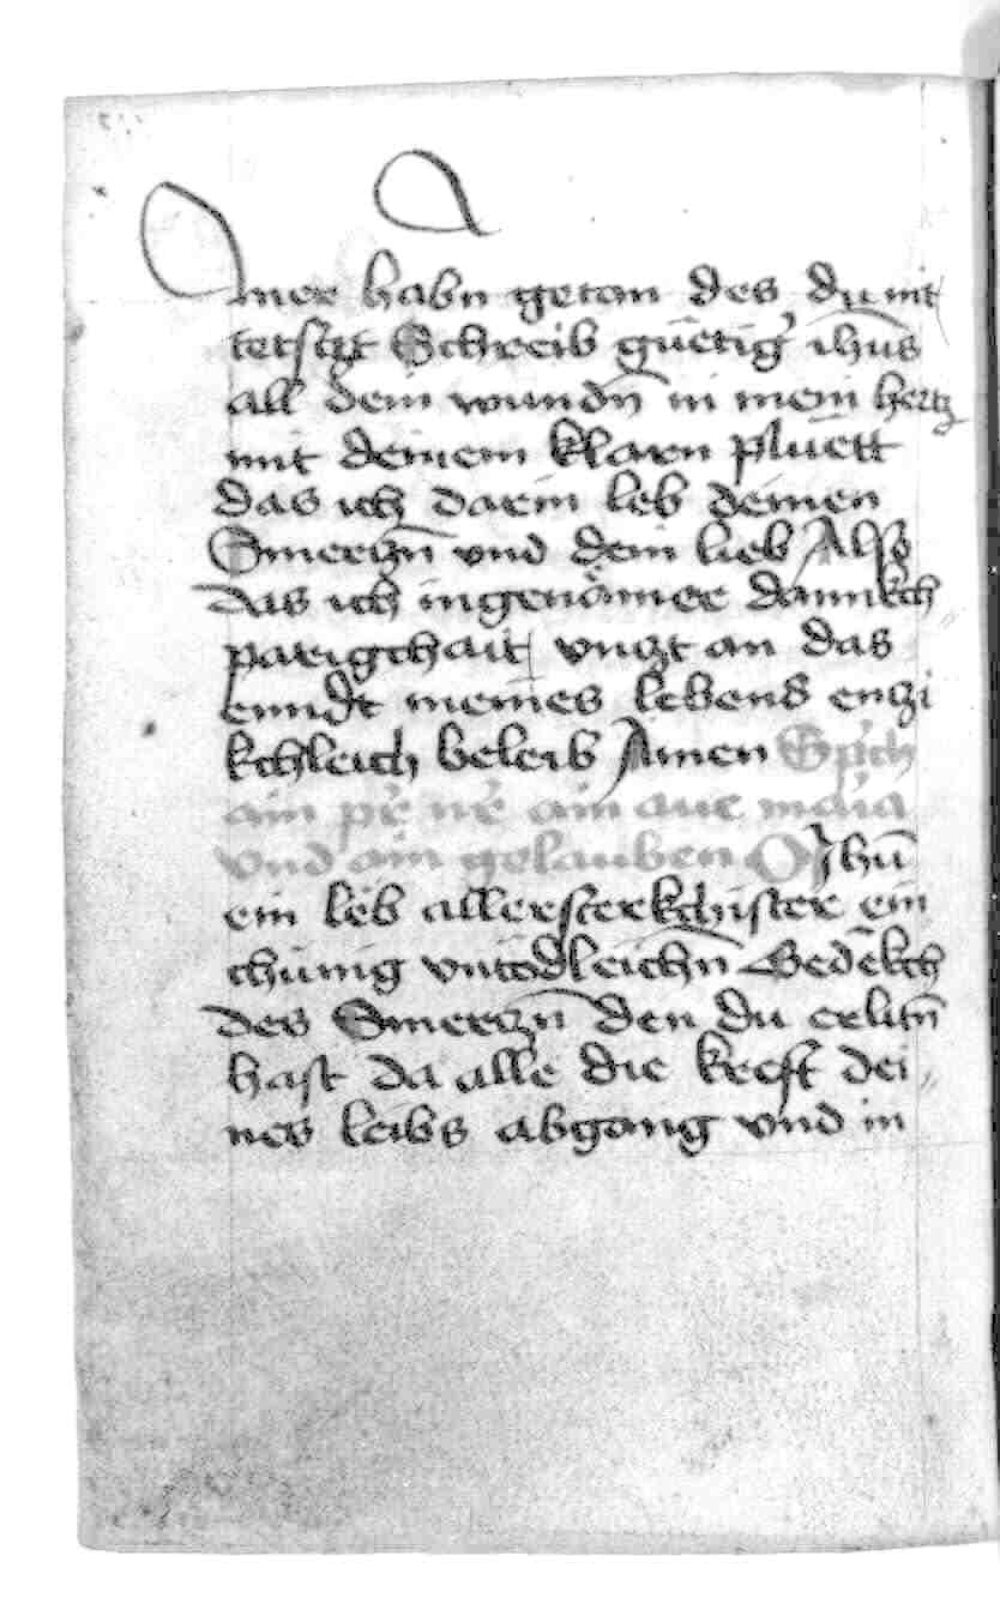 mer habn getan des du nit
tetst Schreib guetig ihus
all dein wundn in mein hertz
mit deinem klarn pluett
das ich darin leb deinen
Smerczn vnd dein lieb Also
das ich in genamer dannkch
parigchait vnczt an das
enndt meines lebens enczi
kchleich beleib Amen Sprich
ain pr nr ain aue maria
vnd ain gelauben O Jhu
ein leb allersterkchister ein
chunig vntodleichn Bedekch
des Smerczn den du erlitn
hast da alle die kreft dei
nes leibs abgang vnd in